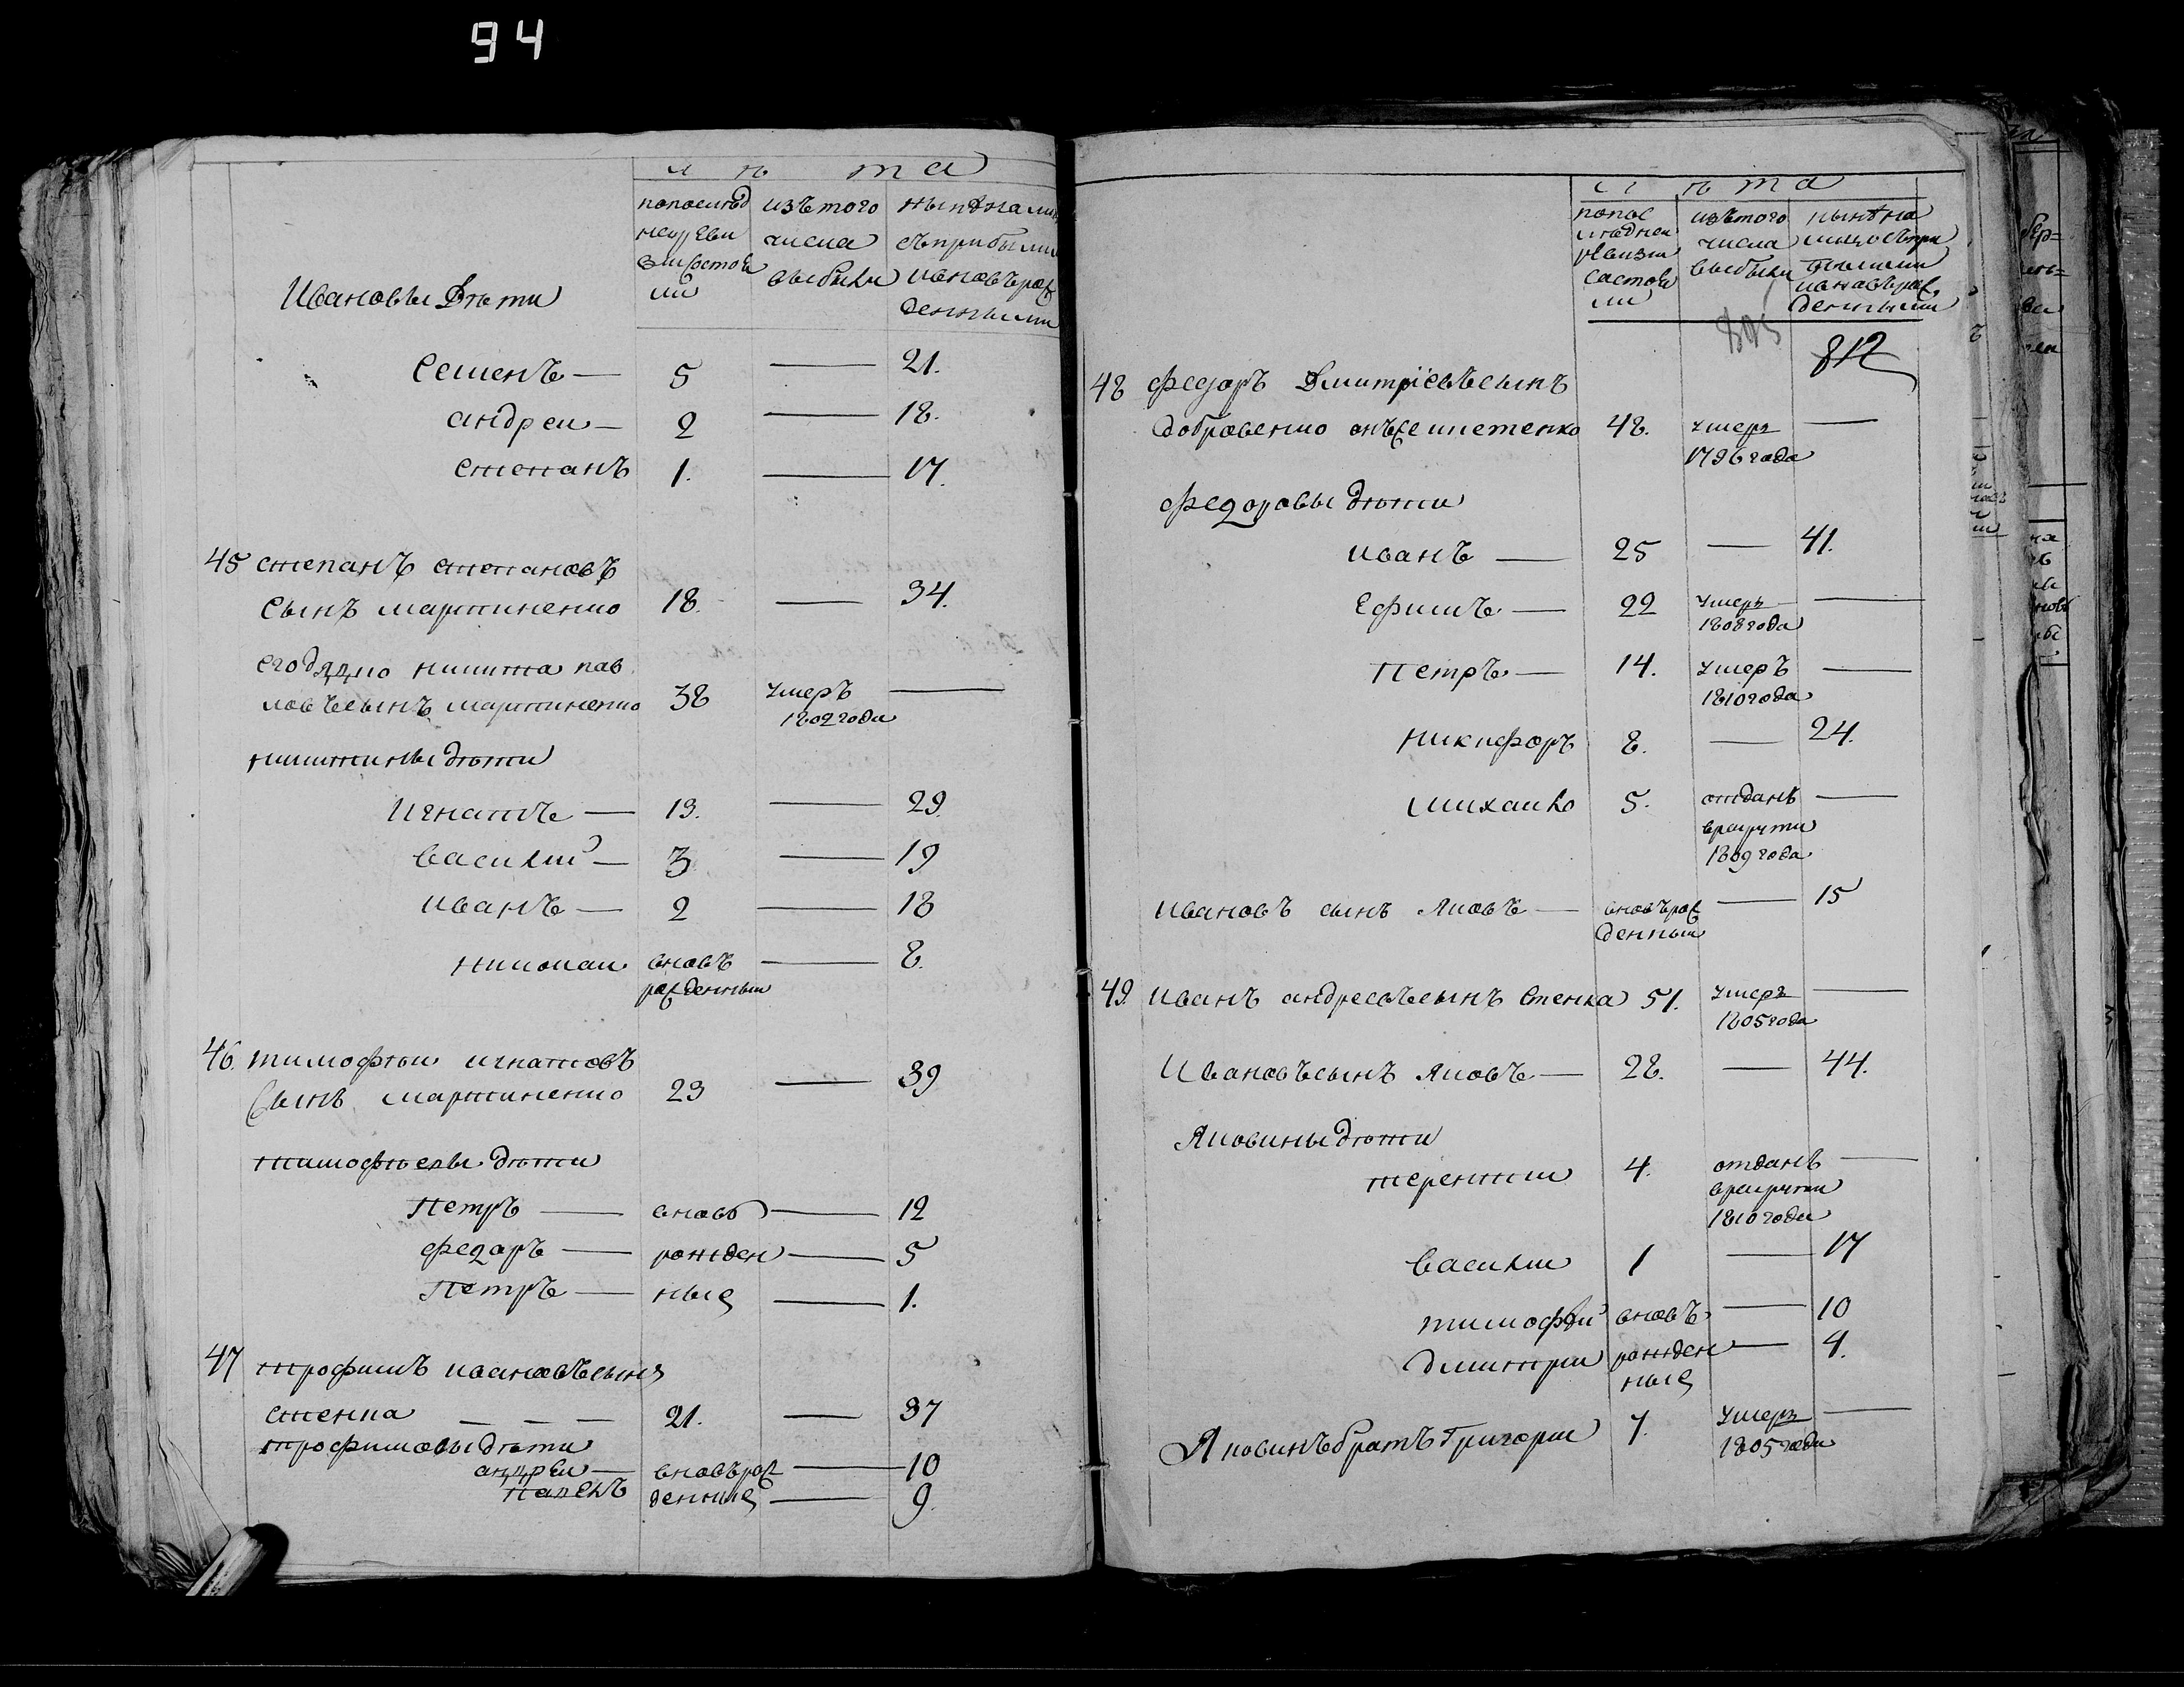 94
лѣта
попослѣд изътого нынѣна ли
неи реви числа съприбыли
зии состоя выбыли ивновърож
ли денными
Ивановы Дѣти
Семенъ — 5 — 21.
андреи — 2 — 18.
степанъ 1. — 17.
45 степанъ степановъ
сынъ мартиненко 18. — 34.
егодядко никита пав
ловъсынъ мартиненко 38 умеръ —
1802 года
никитины дѣти
Игнатъ — 13. — 29.
василий — 3 — 19
иванъ — 2 — 18
николаи вновь — 8.
рожденныи
46. тимофѣи игнатовъ
сынъ мартиненко 23 — 39
тимофѣевы дѣти
Петръ — вново — 12
федаръ — рожден — 5
Петръ — ные — 1.
47 трофимъ ивановъсынъ
стенка — — — 21. — 37
трофимовы дѣти
андреи — вновърож — 10
Павелъ денные — 9.
лѣта
попос изътого нынѣна
лѣднеи числа лицо съпри
ревизии выбыли былыми
састоя ивнавърож
ли денными
805
812
48 федоръ Дмитріевъсынъ
добравенко онъже шпетенко 48. умеръ —
1796 года
федоровы дѣти
иванъ — 25 — 41.
Ефимъ — 22 умеръ —
1808 года
Петръ — 14. умеръ —
1810 года
никифоръ 8. — 24.
михаило 5. отданъ —
врекруты
1809 года
ивановъ сынъ яковъ — вновърож — 15
денныи
49. иванъ андреевъсынъ стенка 51. умеръ —
1805 года
Ивановъсынъ яковъ — 28. — 44.
Яковины дѣти
терентии 4. отданъ —
врекруты
1810 года
василии 1 — 17
тимофѣй вновъ — 10
дмитрии рожден — 4.
ные
Яковинъбратъ Григории 7. умеръ —
1805 года